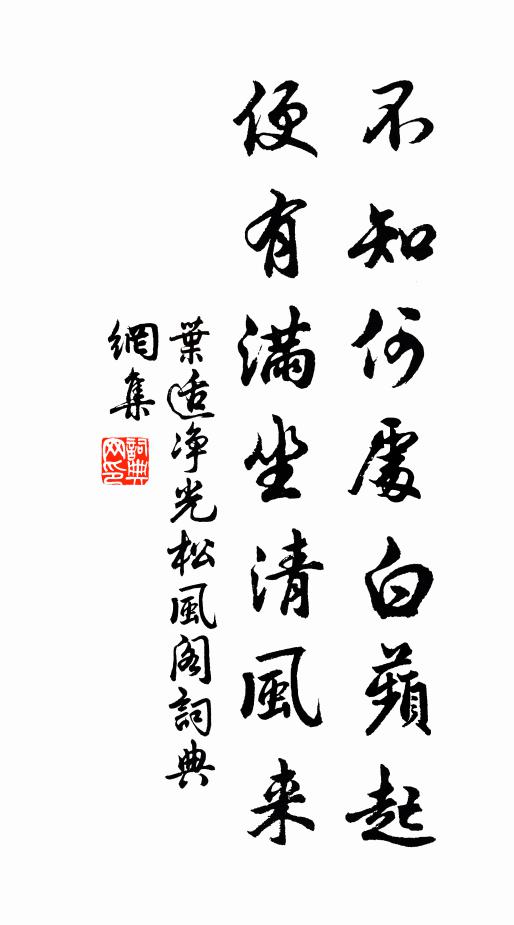 不知何處白蘋起
便有滿坐清風来
葉适净光松風阁詞典
網集
詞典网印